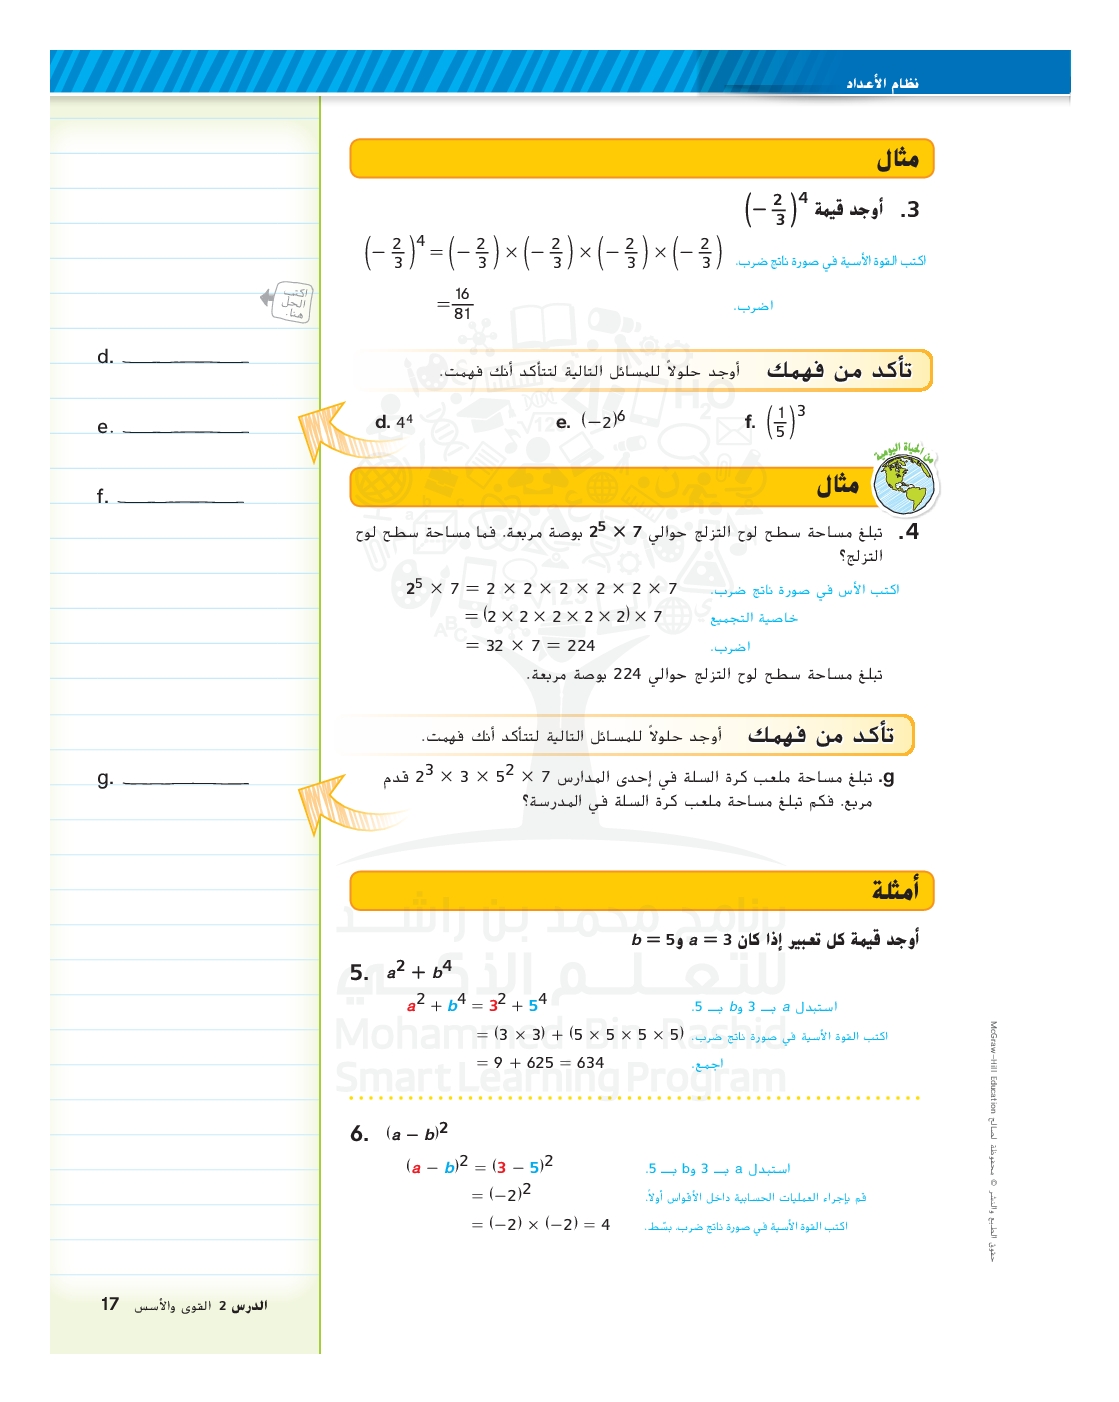 نظام الأعداد
مثال
3. أوجد قيمة (− 2/3)⁴
(− 2/3)⁴ = (− 2/3) × (− 2/3) × (− 2/3) × (− 2/3) اكتب القوة الأسية في صورة ناتج ضرب.
= 16/81 اضرب.
اكتب
الحل
هنا.
تأكد من فهمك أوجد حلولاً للمسائل التالية لتتأكد أنك فهمت.
d. 4⁴ e. (−2)⁶ f. (1/5)³
d. ____________
e. ____________
f. ____________
من الحياة اليومية
مثال
4. تبلغ مساحة سطح لوح التزلج حوالي 2⁵ × 7 بوصة مربعة. فما مساحة سطح لوح
التزلج؟
2⁵ × 7 = 2 × 2 × 2 × 2 × 2 × 7 اكتب الأس في صورة ناتج ضرب.
= (2 × 2 × 2 × 2 × 2) × 7 خاصية التجميع
= 32 × 7 = 224 اضرب.
تبلغ مساحة سطح لوح التزلج حوالي 224 بوصة مربعة.
تأكد من فهمك أوجد حلولاً للمسائل التالية لتتأكد أنك فهمت.
g. تبلغ مساحة ملعب كرة السلة في إحدى المدارس 2³ × 3 × 5² × 7 قدم
مربع. فكم تبلغ مساحة ملعب كرة السلة في المدرسة؟
g. ____________
أمثلة
أوجد قيمة كل تعبير إذا كان a = 3 و b = 5
5. a² + b⁴
a² + b⁴ = 3² + 5⁴ استبدل a بـ 3 و b بـ 5.
= (3 × 3) + (5 × 5 × 5 × 5) اكتب القوة الأسية في صورة ناتج ضرب.
= 9 + 625 = 634 اجمع.
6. (a − b)²
(a − b)² = (3 − 5)² استبدل a بـ 3 و b بـ 5.
= (−2)² قم بإجراء العمليات الحسابية داخل الأقواس أولاً.
= (−2) × (−2) = 4 اكتب القوة الأسية في صورة ناتج ضرب. بسّط.
برنامج محمد بن راشد
للتعلم الذكي
Mohammed Bin Rashid
Smart Learning Program
حقوق الطبع والنشر © محفوظة لصالح McGraw-Hill Education
الدرس 2 القوى والأسس 17